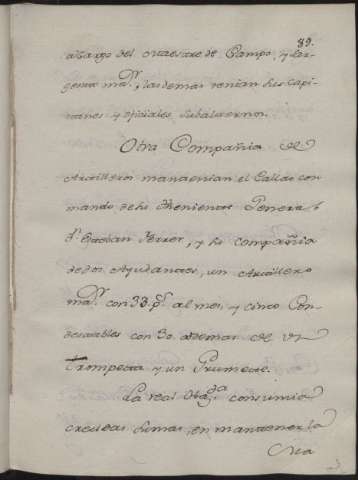 89.
a Cargo del Maestre de Campo, y Sar-
gento mȯr, y las demas tenian sus Capi-
tanes y oficiales subalternos.
Otra Compañia de
Artilleros mantenian el Callao con
mando de su Theniente General
dn Esteban Ferrer, y su compañia
de dos Ayudantes, un Artillero
mȯr con 33 ps al mes, y cinco Con-
destables con 30 ademas de un
trompeta y un
La real Hazda consumia
crecidas sumas, en mantener la